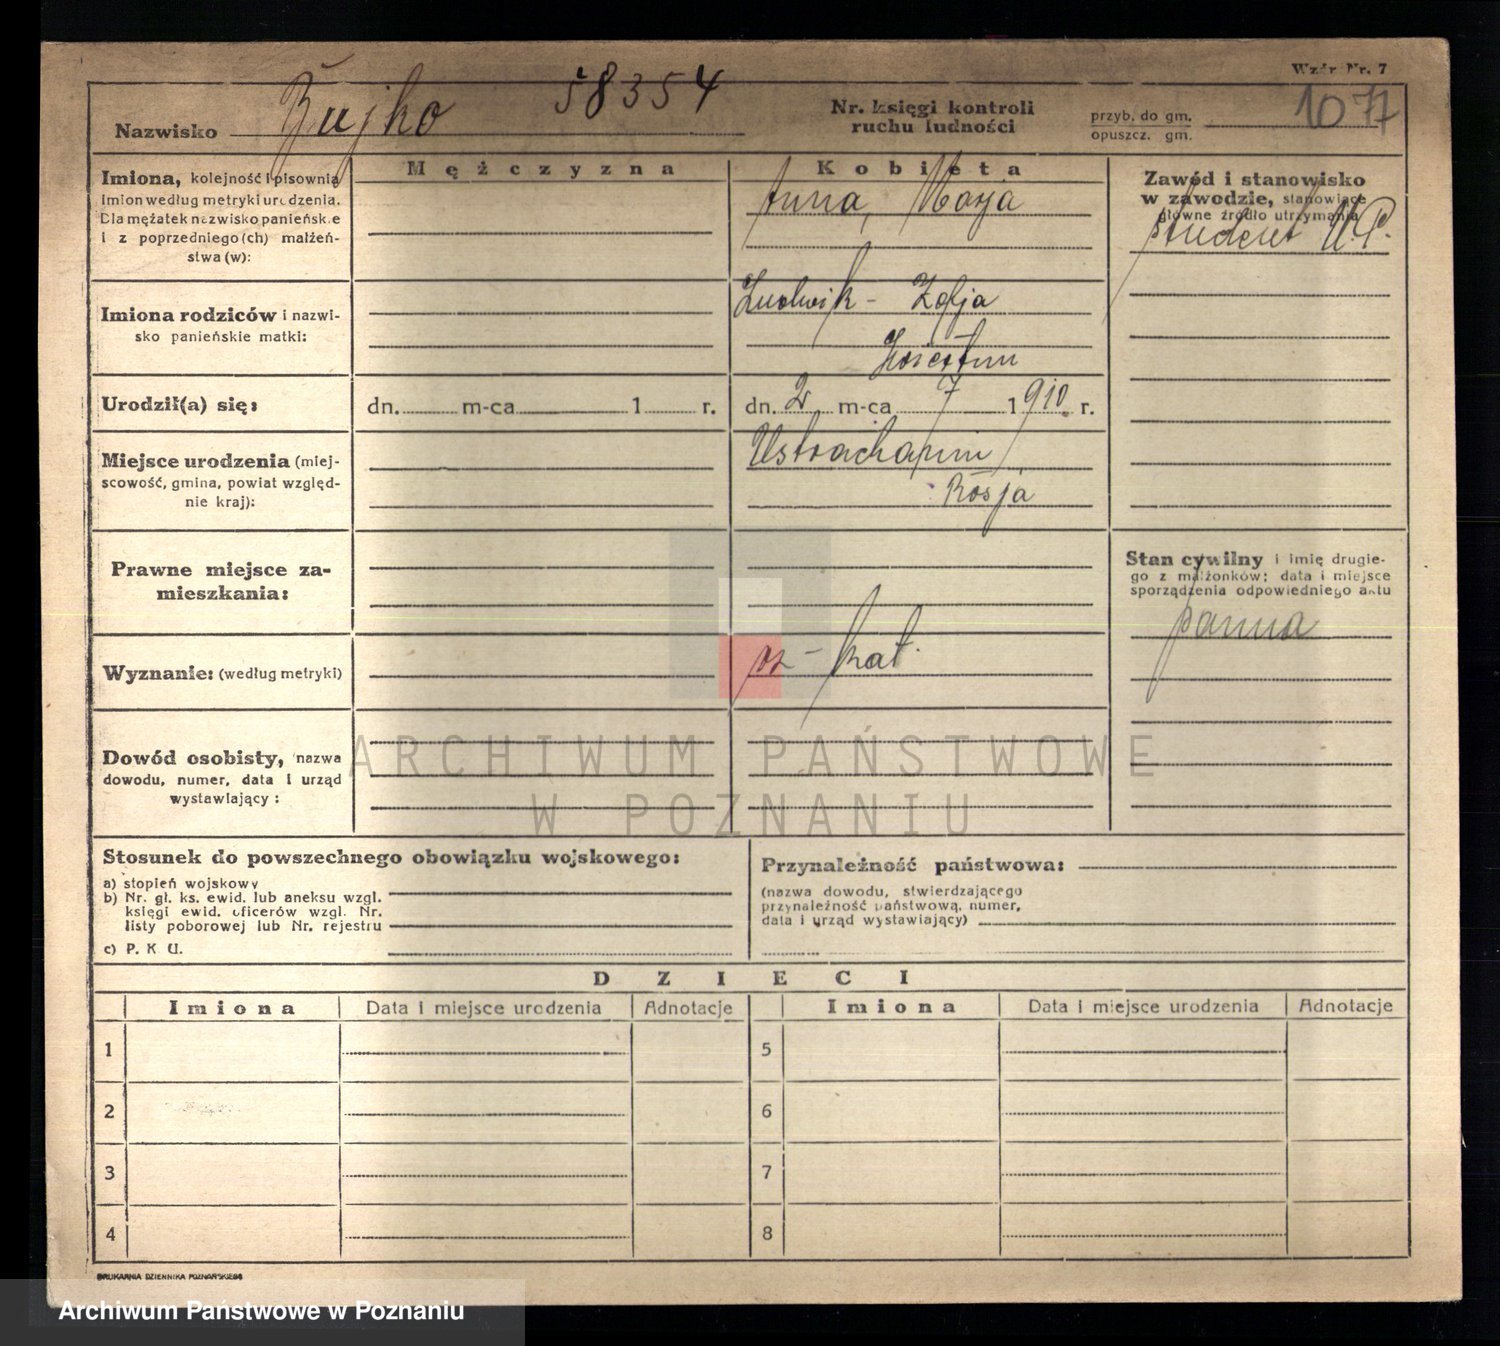 Wzór Nr. 7
Nazwisko Żujko 58354
Nr. księgi kontroli
ruchu ludności
przyb. do gm.
opuszcz. gm.
1077
Mężczyzna
Kobieta
Imiona, kolejność i pisownia
imion według metryki urodzenia.
Dla mężatek nazwisko panieńskie
i z poprzedniego (ch) małżeń-
stwa (w):
Anna, Marja
Zawód i stanowisko
w zawodzie, stanowiące
główne źródło utrzymania
student U.P.
Imiona rodziców i nazwi-
sko panieńskie matki:
Ludwik - Zofja
Urodził(a) się:
dn. m-ca 1 r.
dn. 2 m-ca 7 1910. r.
Miejsce urodzenia (miej-
scowość, gmina, powiat względ-
nie kraj):
Rosja
Prawne miejsce za-
mieszkania:
Stan cywilny i imię drugie-
go z małżonków; data i miejsce
sporządzenia odpowiedniego aktu
panna
Wyznanie: (według metryki)
rz - kat.
Dowód osobisty, nazwa
dowodu, numer, data i urząd
wystawiający :
ARCHIWUM PAŃSTWOWE
W POZNANIU
Stosunek do powszechnego obowiązku wojskowego:
a) stopień wojskowy
b) Nr. gł. ks. ewid. lub aneksu wzgl.
księgi ewid. oficerów wzgl. Nr.
listy poborowej lub Nr. rejestru
c) P. K U.
Przynależność państwowa:
(nazwa dowodu, stwierdzającego
przynależność państwową, numer,
data i urząd wystawiający)
DZIECI
Imiona Data i miejsce urodzenia Adnotacje Imiona Data i miejsce urodzenia Adnotacje
1 5
2 6
3 7
4 8
DRUKARNIA DZIENNIKA POZNAŃSKIEGO
Archiwum Państwowe w Poznaniu